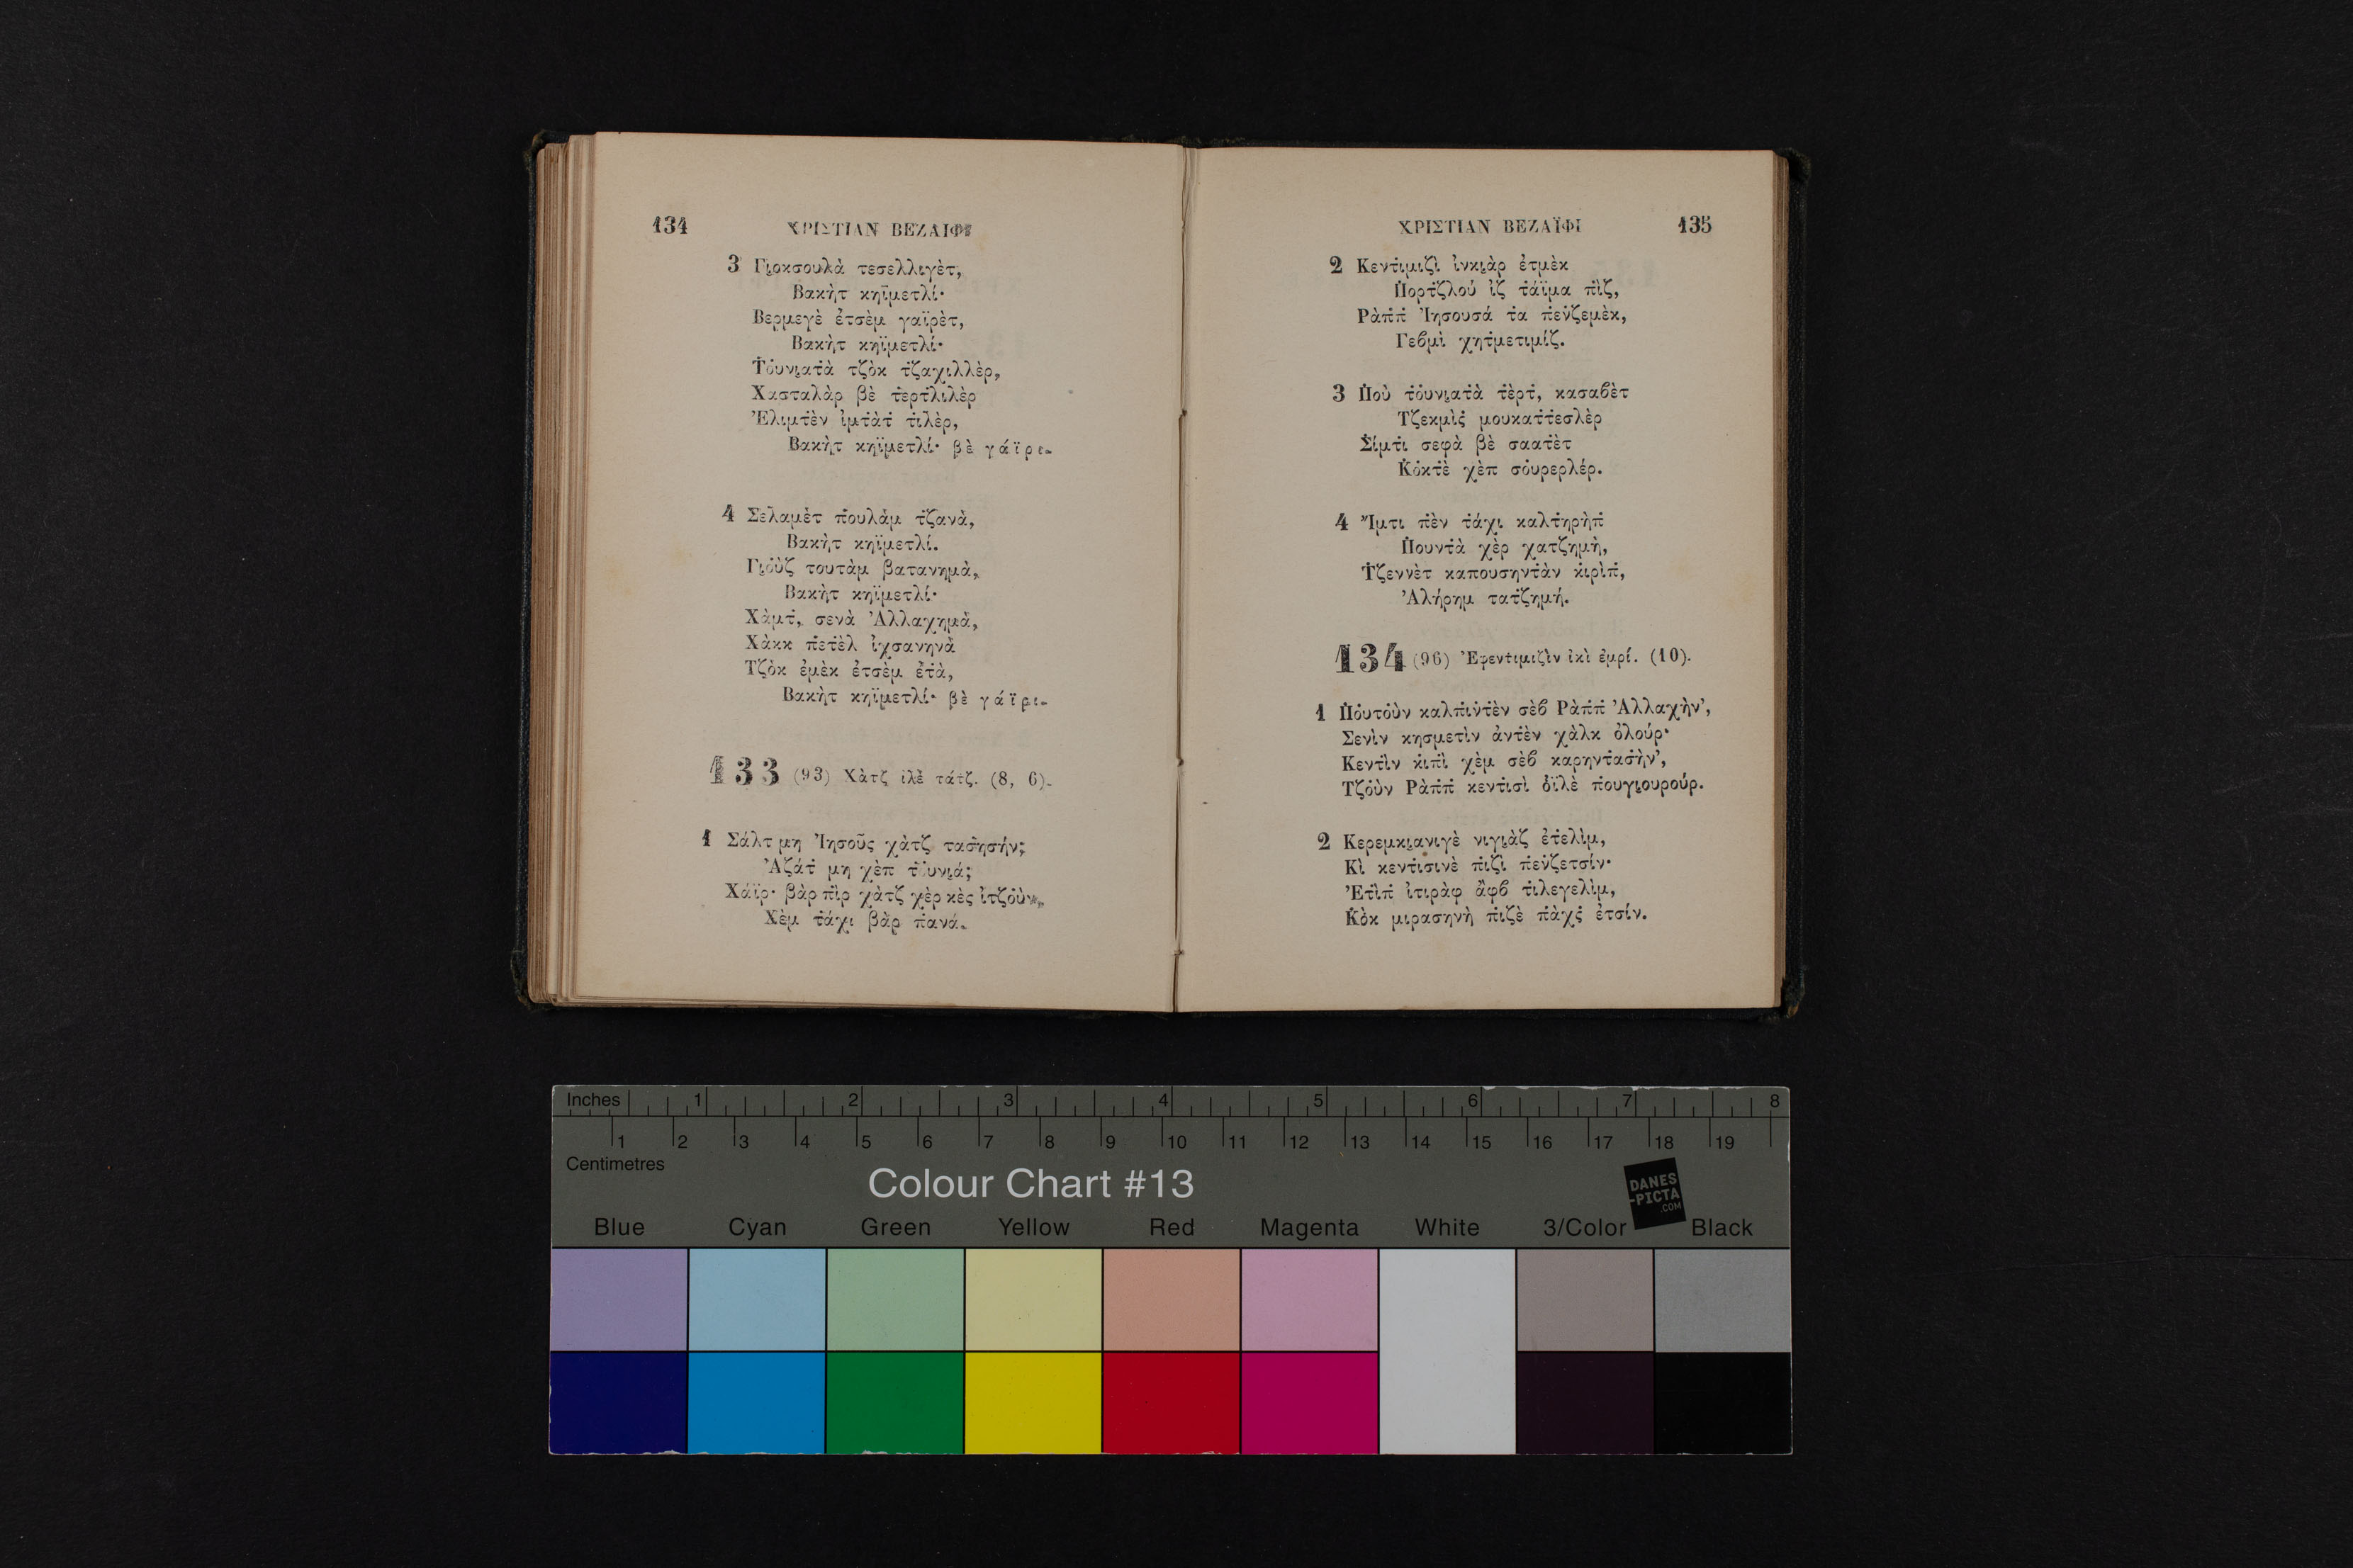 134 ΧΡΙΣΤΙΑΝ ΒΕΖΑΙΦΙ
3 Γι̯οκσουλὰ τεσελλιγὲτ,
Βακὴτ κηϊμετλί·
Βερμεγὲ ἐτσὲμ γαϊρὲτ,
Βακὴτ κηϊμετλί·
Τ̇ο̇υνι̯ατ̇ὰ τζὸκ τ̇ζαχιλλὲρ,
Χασταλὰρ βὲ τ̇ερτ̇λιλὲρ
Ἐλιμτ̇ὲν ἰμτ̇ὰτ̇ τ̇ιλὲρ,
Βακὴτ κηϊμετλί· βὲ γάϊρι.
4 Σελαμὲτ π̇ουλὰμ τ̇ζανὰ,
Βακὴτ κηϊμετλί.
Γι̯ο̇ὺζ τουτὰμ βατανημὰ,
Βακὴτ κηϊμετλί·
Χὰμτ̇, σενὰ Ἀλλαχημὰ,
Χὰκκ π̇ετ̇ὲλ ἰχσανηνὰ
Τζὸκ ἐμὲκ ἐτσὲμ ἐτ̇ὰ,
Βακὴτ κηϊμετλί· βὲ γάϊρι.
133 (93) Χὰτζ ἰλὲ τάτζ. (8, 6).
1 Σάλτ μη Ἰησοῦς χὰτζ τασ̇ησήν;
Ἀζάτ̇ μη χὲπ τ̇ο̇υνι̯ά;
Χάϊρ· βὰρ π̇ὶρ χὰτζ χὲρ κὲς ἰτζο̇ὺν,
Χὲμ τ̇άχι βὰρ π̇ανά.
ΧΡΙΣΤΙΑΝ ΒΕΖΑΪΦΙ 135
2 Κεντ̇ιμιζὶ ἰνκι̯ὰρ ἐτμὲκ
Π̇ορτζλοὺ ἰζ τ̇άϊμα π̇ὶζ,
Ρὰπ̇π̇ Ἰησουσά τ̇α π̇εν̇ζεμὲκ,
Γεβμὶ χητ̇μετιμίζ.
3 Π̇οὺ τ̇ο̇υνι̯ατ̇ὰ τ̇ὲρτ̇, κασαβὲτ
Τζεκμὶς̇ μουκατ̇τ̇εσλὲρ
Σ̇ίμτ̇ι σεφὰ βὲ σαατ̇ὲτ
Κ̇ο̇κτ̇ὲ χὲπ σο̇υρερλέρ.
4 Ἴμτι π̇ὲν τ̇άχι καλτ̇ηρὴπ̇
Π̇ουντ̇ὰ χὲρ χατζημὴ,
Τ̇ζεννὲτ καπουσηντ̇ὰν κ̇ιρὶπ̇,
Ἀλήρημ τατ̇ζημή.
134 (96) Ἐφεντιμιζὶν ἰκὶ ἐμρί. (10).
1 Π̇ο̇υτο̇ὺν καλπ̇ιν̇τ̇ὲν σὲβ Ρὰπ̇π̇ Ἀλλαχὴν',
Σενὶν κησμετὶν ἀντ̇ὲν χὰλκ ὀλούρ·
Κεντ̇ὶν κ̇ιπ̇ὶ χὲμ σὲβ καρηντ̇ασ̇ὴν',
Τζο̇ὺν Ρὰπ̇π̇ κεντ̇ισὶ ὀ̇ϊλὲ π̇ουγι̯ουρούρ.
2 Κερεμκι̯ανιγὲ νιγι̯ὰζ ἐτ̇ελὶμ,
Κὶ κεντ̇ισινὲ π̇ιζὶ π̇εν̇ζετσίν·
Ἐτ̇ὶπ̇ ἰτιρὰφ ἄφβ τ̇ιλεγελὶμ,
Κ̇ὸ̇κ μιρασηνὴ π̇ιζὲ π̇ὰχς̇ ἐτσίν.
Inches 1 2 3 4 5 6 7 8
1 2 3 4 5 6 7 8 9 10 11 12 13 14 15 16 17 18 19
Centimetres
Colour Chart #13
DANES
-PICTA
.COM
Blue Cyan Green Yellow Red Magenta White 3/Color Black